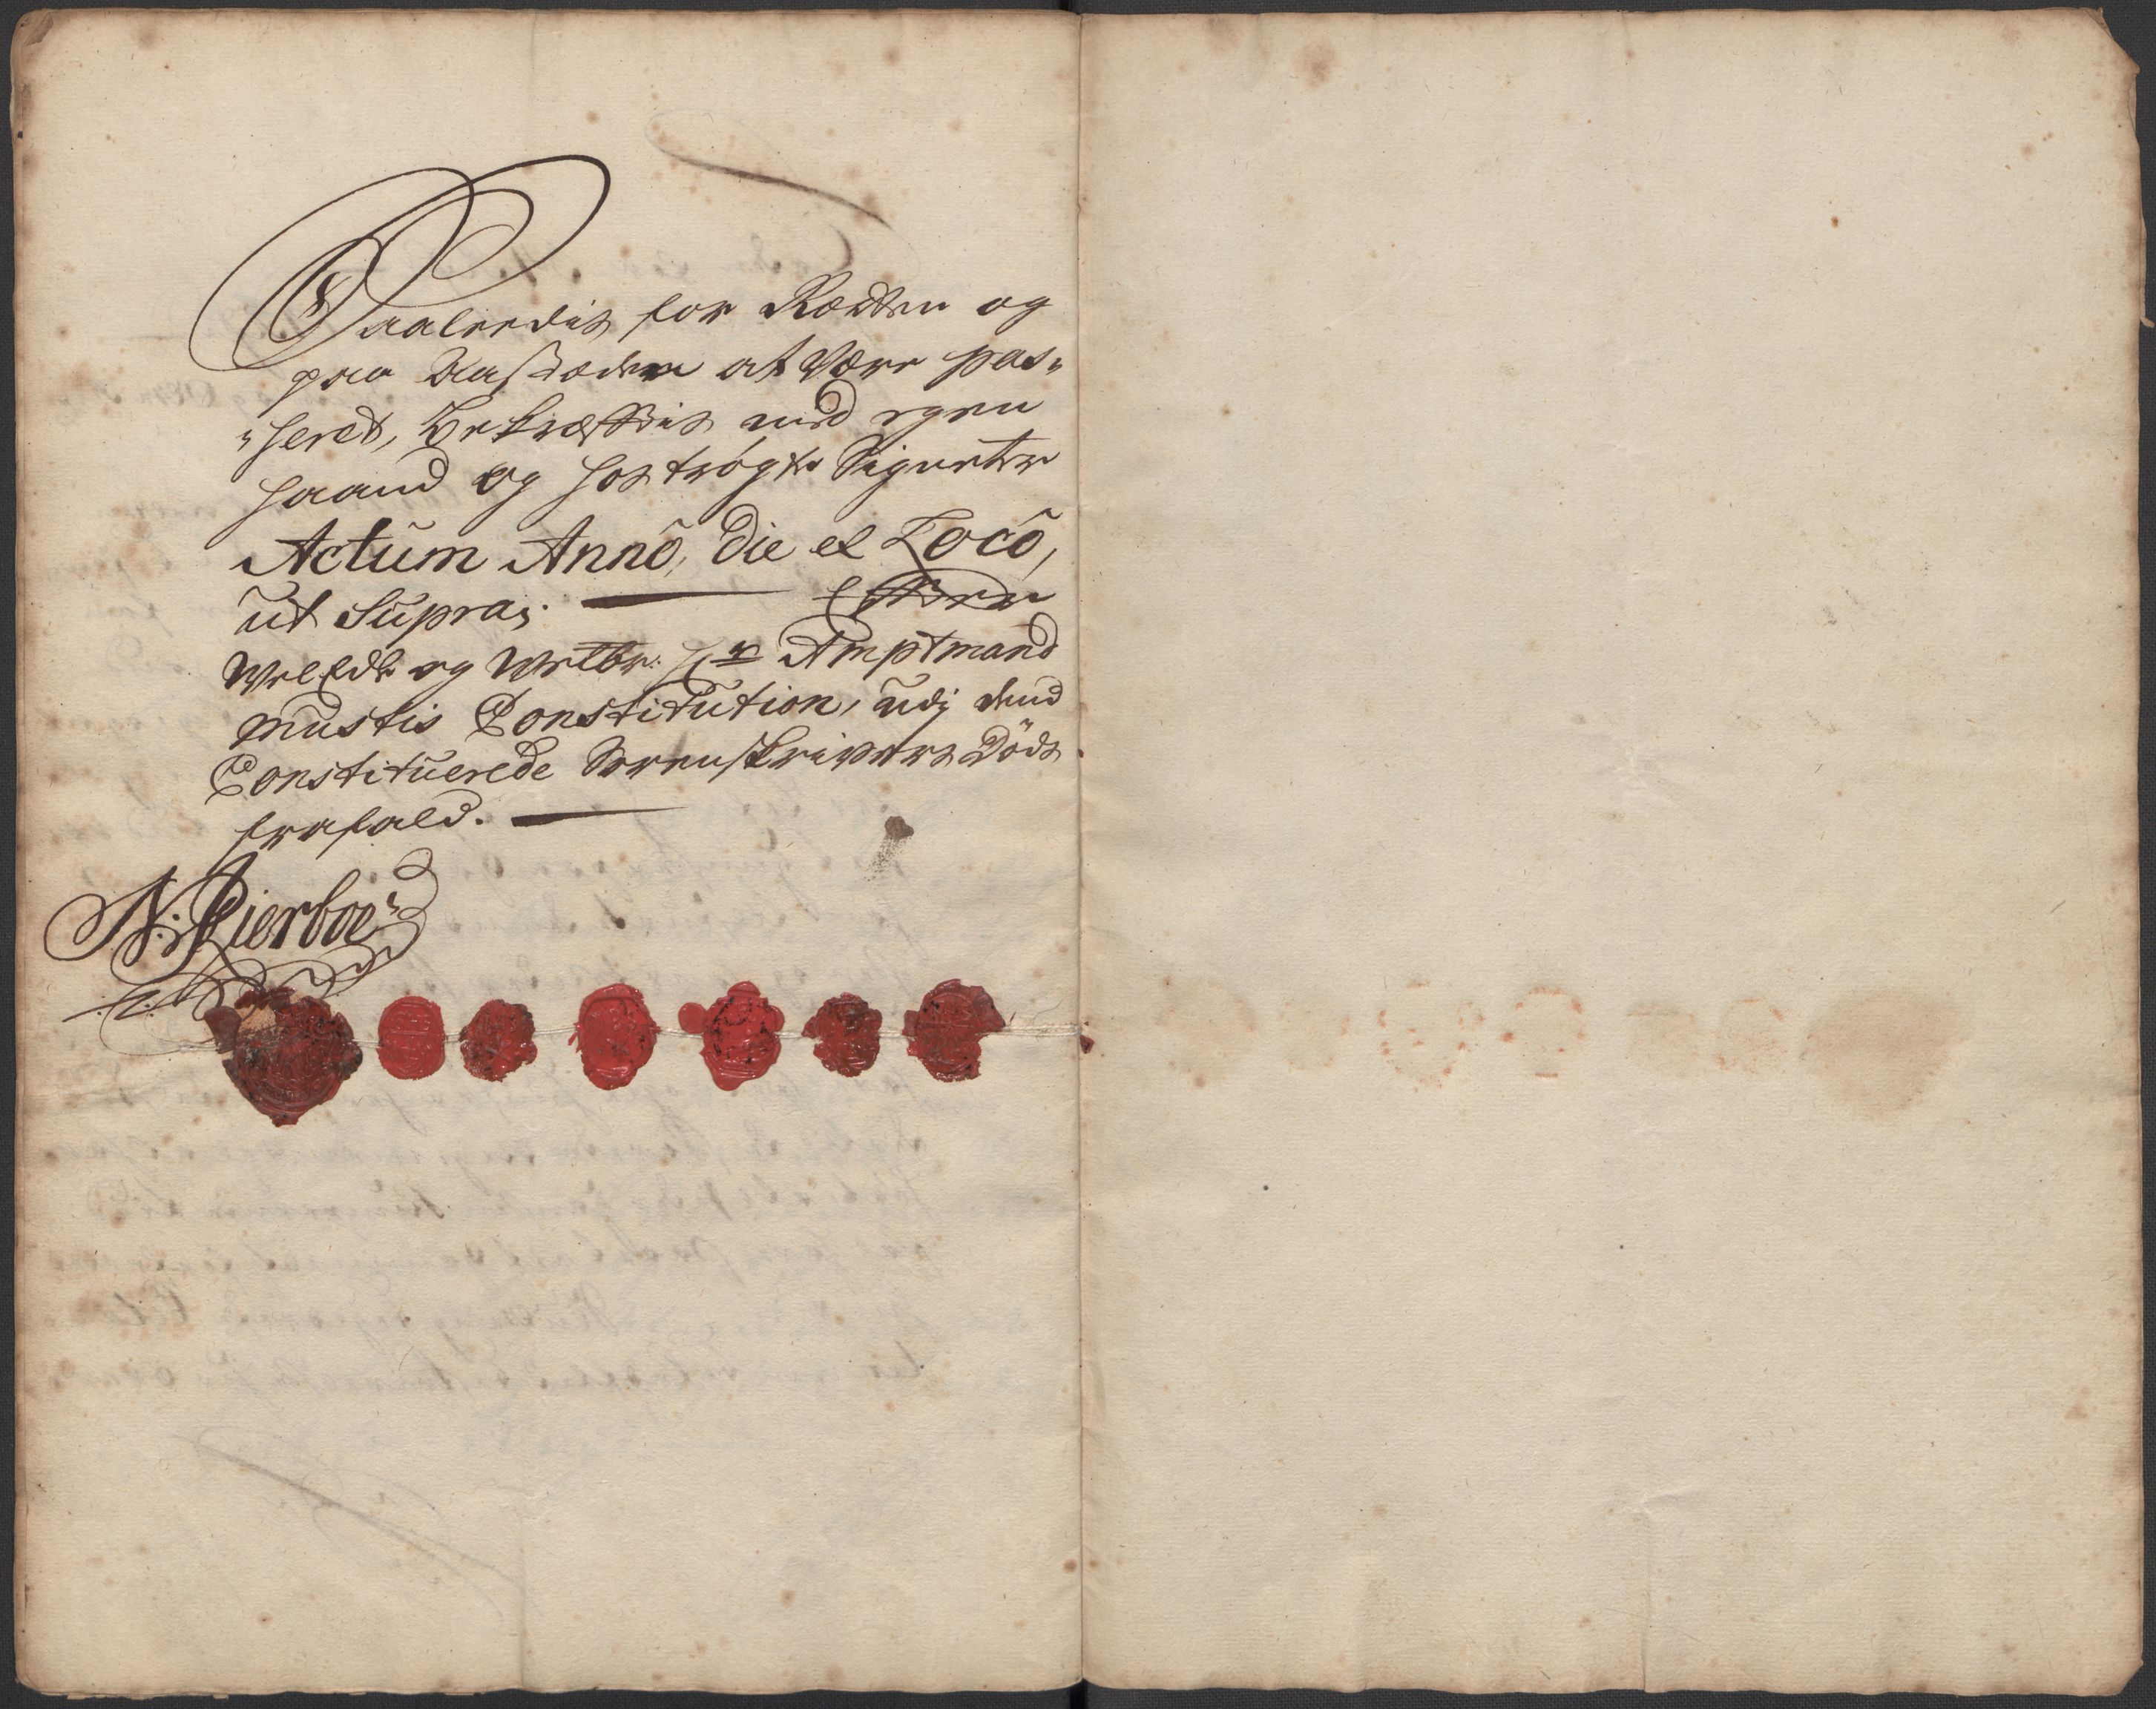 Saaleedis for Rætten og
paa Aastæden at Være pas„
„seret, Bekræfftis med egen
haand og hoströgte Signeter
Actum Annô, Die et Locô,
ut Supra;. Effter
Welædl og Welbr: Hr Amptmand
Mustis Constitution, udj dend
Constituerede Sorenskrivers Döds
frafald.
N: Bierboe